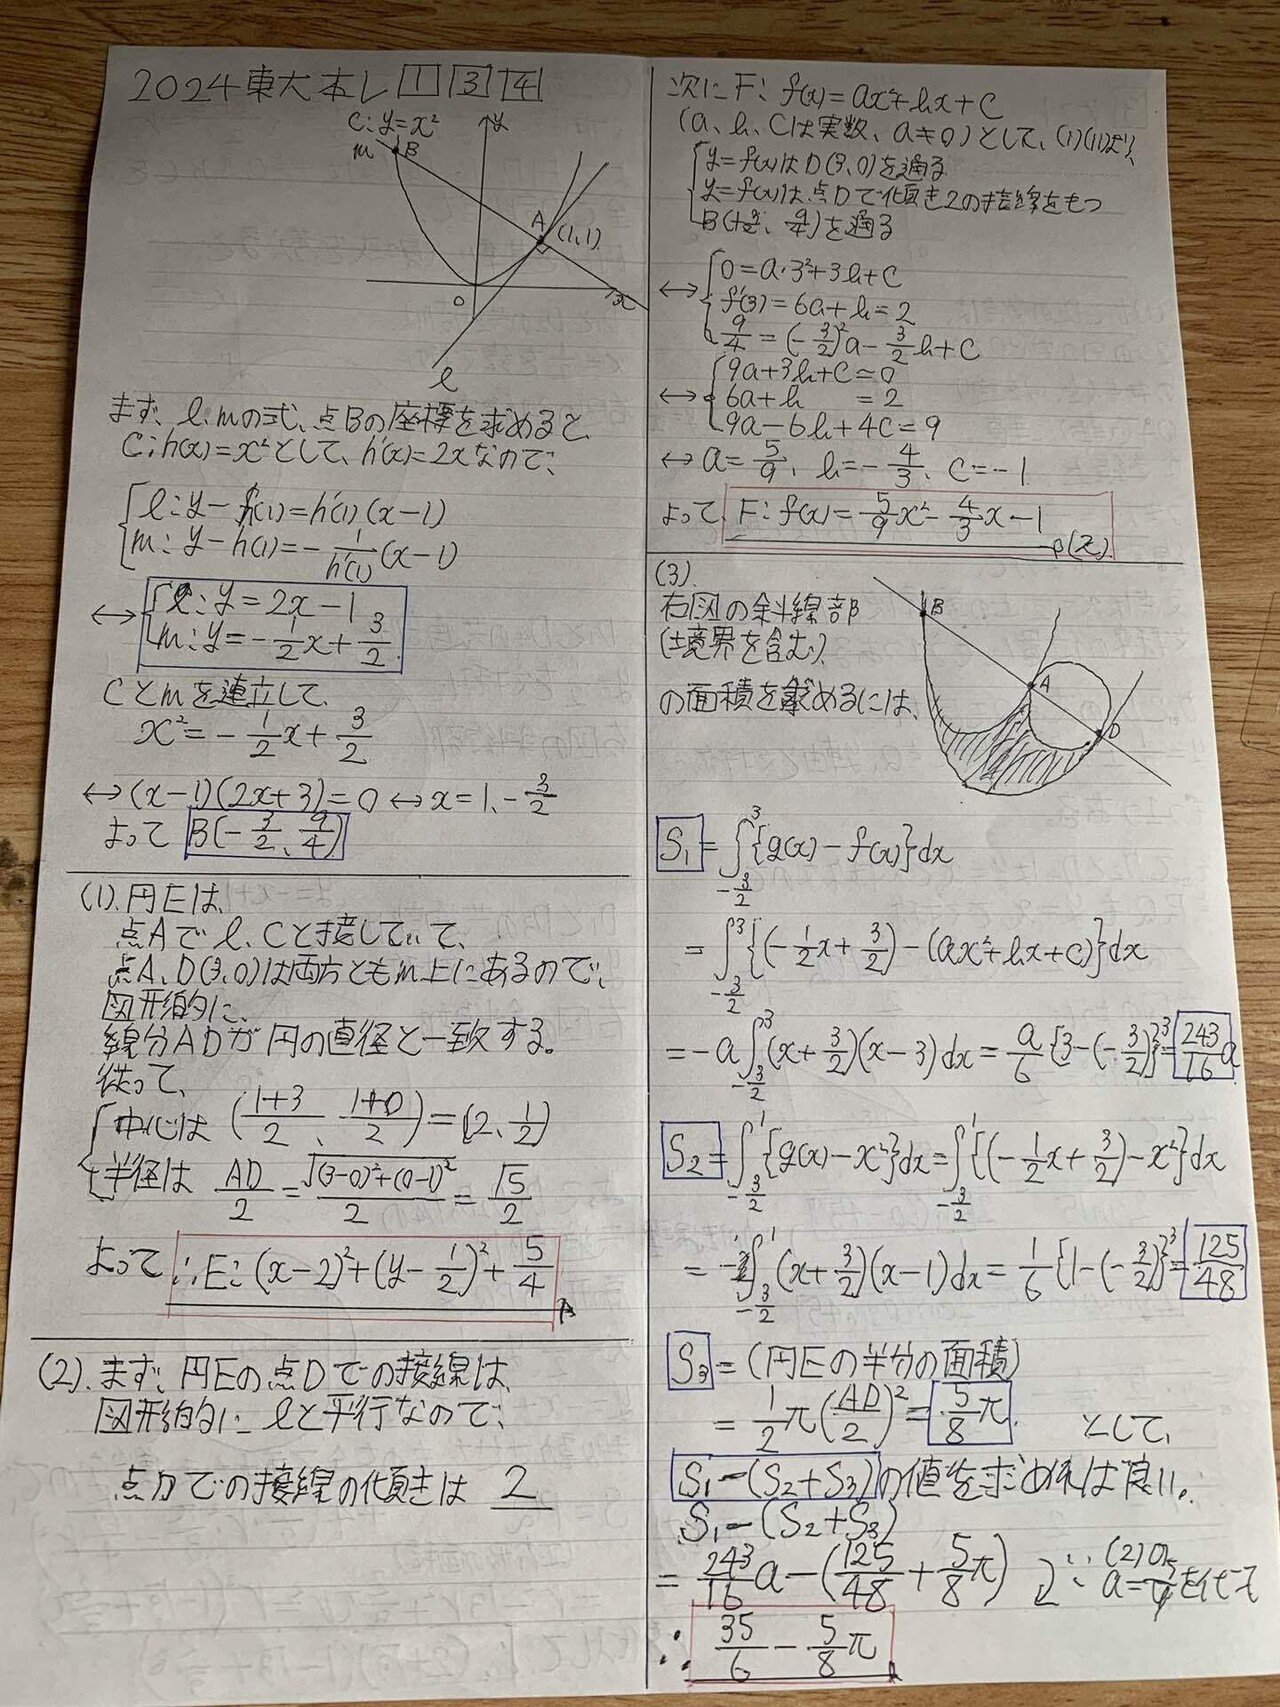 2024東大本レ 1 3 4
C:y=x²
m B
y
A (1,1)
O
x
l
まず、l、mの式、点Bの座標を求めると、
C:h(x)=x²として、h'(x)=2xなので、
l:y-h(1)=h'(1)(x-1)
m:y-h(1)=-1/h'(1)(x-1)
↔ l:y=2x-1
m:y=-1/2x+3/2
Cとmを連立して、
x²=-1/2x+3/2
↔(x-1)(2x+3)=0↔x=1、-3/2
よって B(-3/2、9/4)
(1).円Eは、
点Aでl、Cと接していて、
点A、D(3,0)は両方ともm上にあるので、
図形的に、
線分ADが円の直径と一致する。
従って、
中心は (1+3/2、1+0/2)=(2、1/2)
半径は AD/2=√(3-0)²+(0-1)²/2=√5/2
よって ∴E:(x-2)²+(y-1/2)²+5/4
(2).まず、円Eの点Dでの接線は、
図形的にlと平行なので、
点Dでの接線の傾きは 2
次にF:f(x)=ax²+bx+c
(a、b、cは実数、a≠0)として、(i)(ii)より、
y=f(x)はD(3,0)を通る
y=f(x)は点Dで傾き2の接線をもつ
B(-3/2、9/4)を通る
↔ 0=a·3²+3b+c
f'(3)=6a+b=2
9/4=(-3/2)²a-3/2b+c
↔ 9a+3b+c=0
6a+b =2
9a-6b+4c=9
↔a=5/9、b=-4/3、c=-1
よって、F:f(x)=5/9x²-4/3x-1
(3).
右図の斜線部
(境界を含む)
の面積を求めるには、
B
A
D
S₁=∫_{-3/2}^{3}{g(x)-f(x)}dx
=∫_{-3/2}^{3}{(-1/2x+3/2)-(ax²+bx+c)}dx
=-a∫_{-3/2}^{3}(x+3/2)(x-3)dx=a/6{3-(-3/2)}³=243/16a
S₂=∫_{-3/2}^{1}{g(x)-x²}dx=∫_{-3/2}^{1}{(-1/2x+3/2)-x²}dx
=-∫_{-3/2}^{1}(x+3/2)(x-1)dx=1/6{1-(-3/2)}³=125/48
S₃=(円Eの半分の面積)
=1/2π(AD/2)²=5/8π として、
S₁-(S₂+S₃)の値を求めれば良い。
S₁-(S₂+S₃)
=243/16a-(125/48+5/8π) ∵(2)の a=5/9を代て
∴ 35/6-5/8π